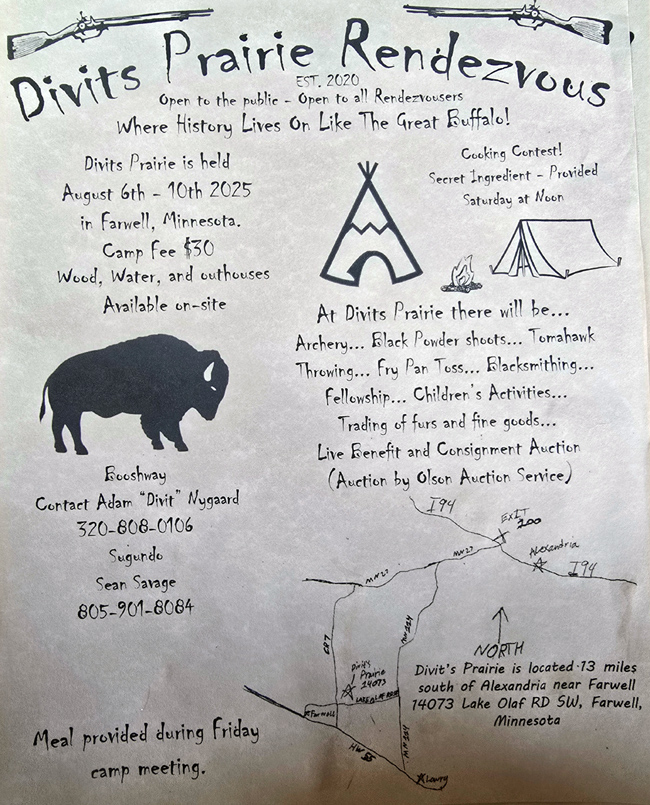 Divits Prairie Rendezvous
EST. 2020
Open to the public - Open to all Rendezvousers
Where History Lives On Like The Great Buffalo!
Divits Prairie is held
August 6th - 10th 2025
in Farwell, Minnesota.
Camp Fee $30
Wood, Water, and outhouses
Available on-site
Cooking Contest!
Secret Ingredient - Provided
Saturday at Noon
At Divits Prairie there will be...
Archery... Black Powder shoots... Tomahawk
Throwing... Fry Pan Toss... Blacksmithing...
Fellowship... Children's Activities...
Trading of furs and fine goods...
Live Benefit and Consignment Auction
(Auction by Olson Auction Service)
Booshway
Contact Adam "Divit" Nygaard
320-808-0106
Sugundo
Sean Savage
805-901-8084
Meal provided during Friday
camp meeting.
I94
EXIT
100
Alexandria
I94
MN27
MN27
CR7
MN114
NORTH
Divit's
Prairie
14073
LAKE OLAF RD SW
Farwell
HW 55
MN114
Lowry
Divit's Prairie is located 13 miles
south of Alexandria near Farwell
14073 Lake Olaf RD SW, Farwell,
Minnesota